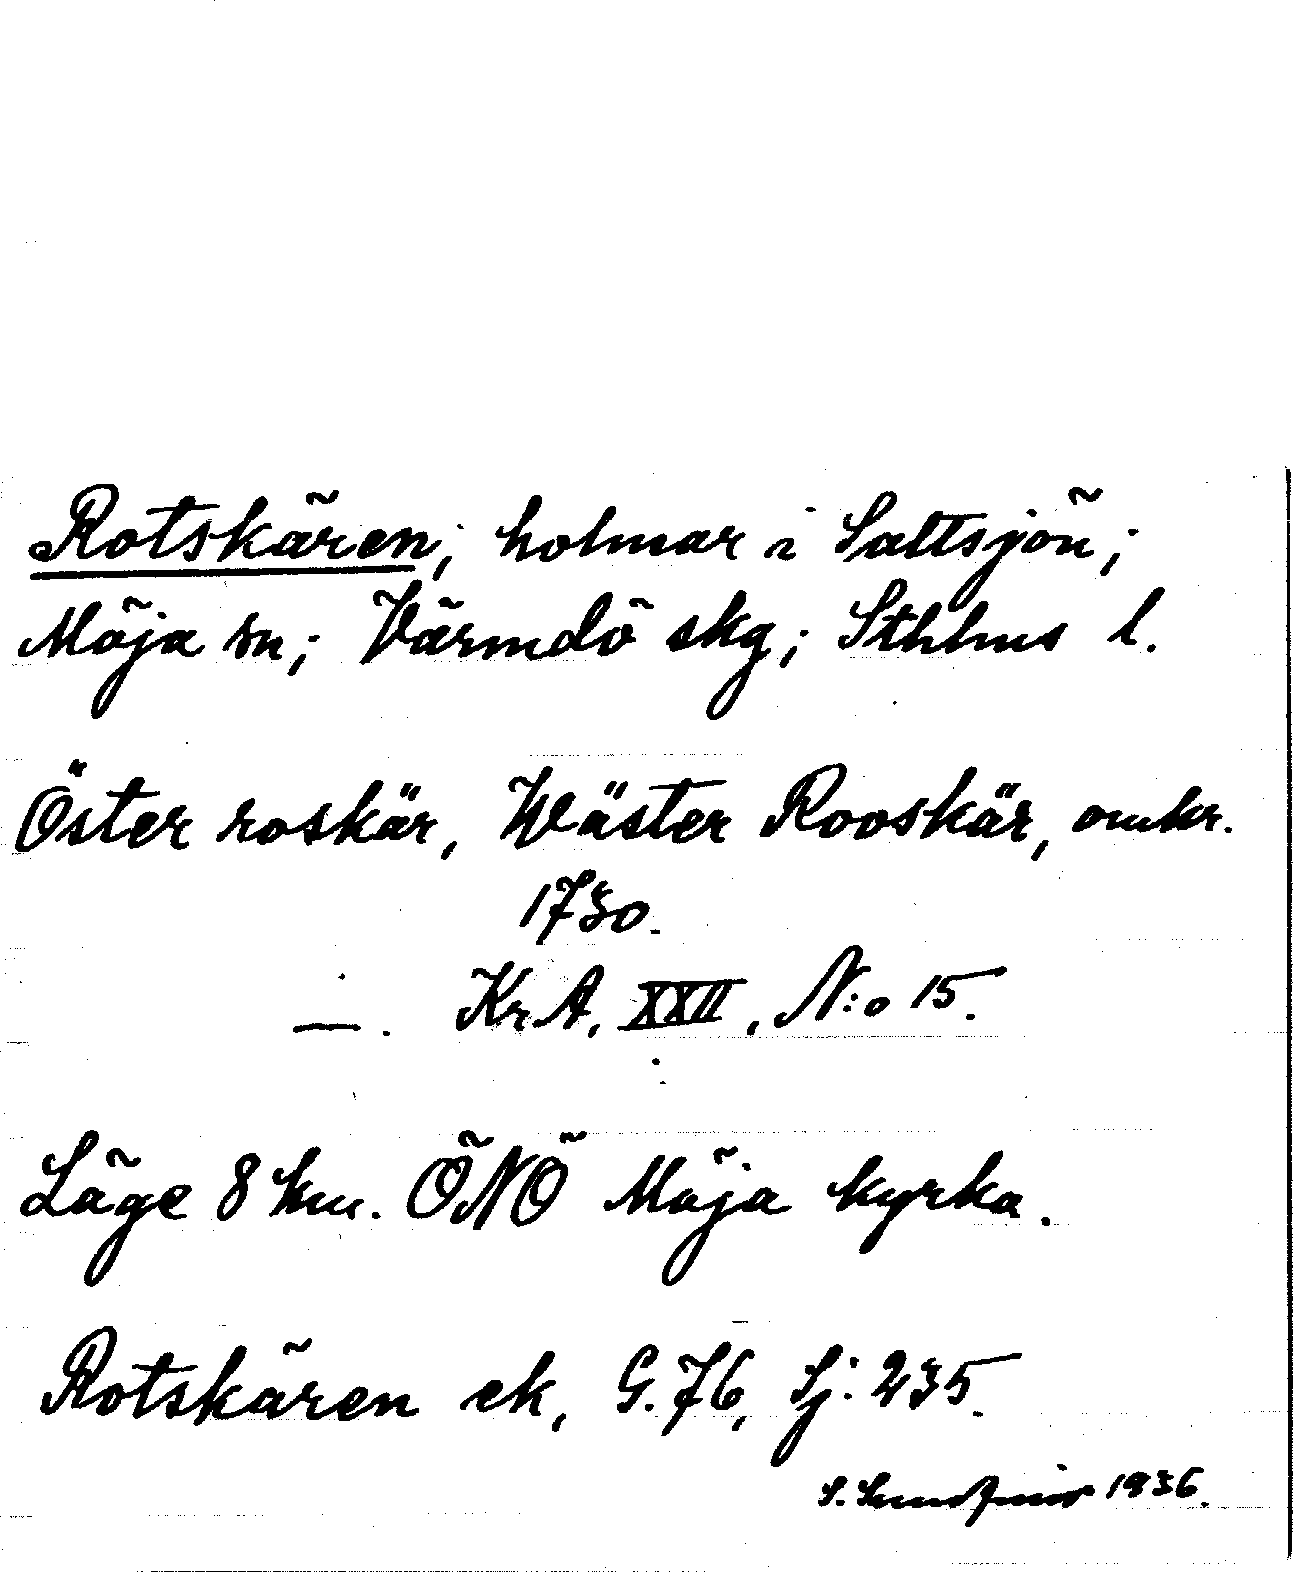 Rotskären, holmar i Saltsjön;
Möja sn; Värmdö skg; Sthlms l.
Öster roskär, Wäster Rooskär, omkr.
1730.
—. KrA, XXII, N:o 15.
Läge 8 km. ÖNÖ Möja kyrka.
Rotskären ek, G.76, Sj: 235.
S. 1936.